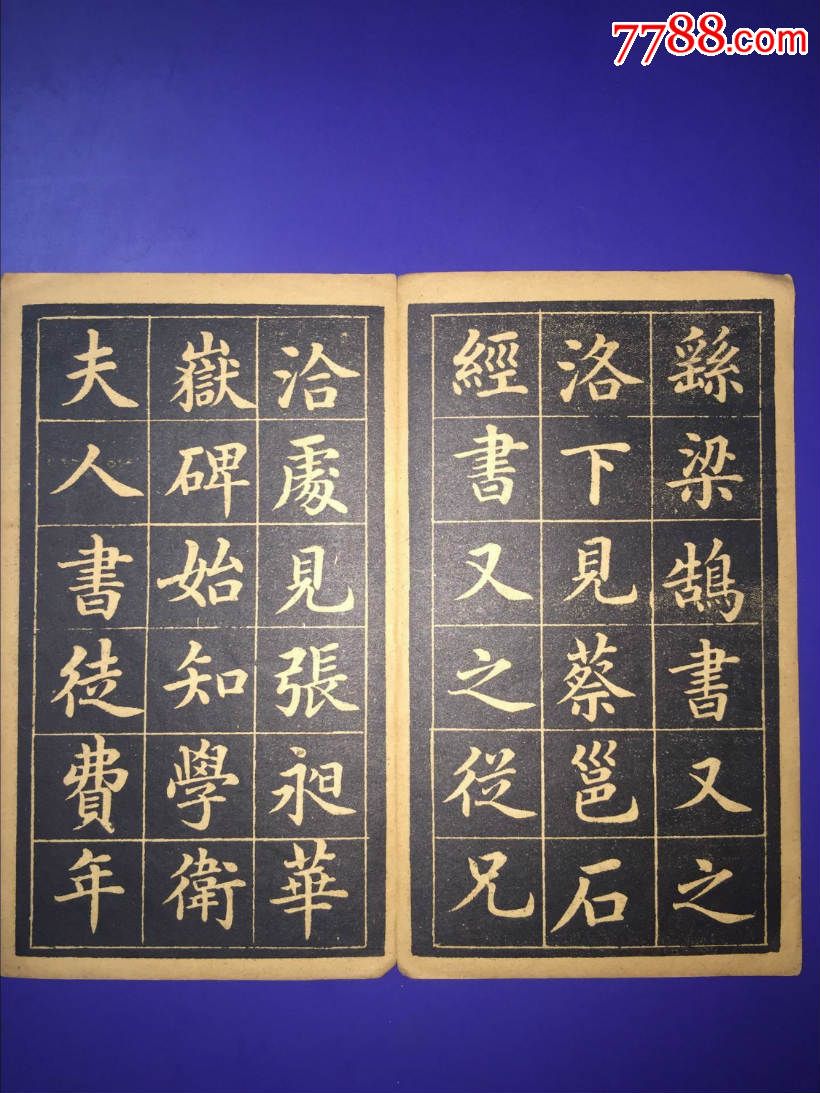 7788.com
繇梁鵠書又之
洛下見蔡邕石
經書又之從兄
洽處見張昶華
嶽碑始知學衛
夫人書徒費年